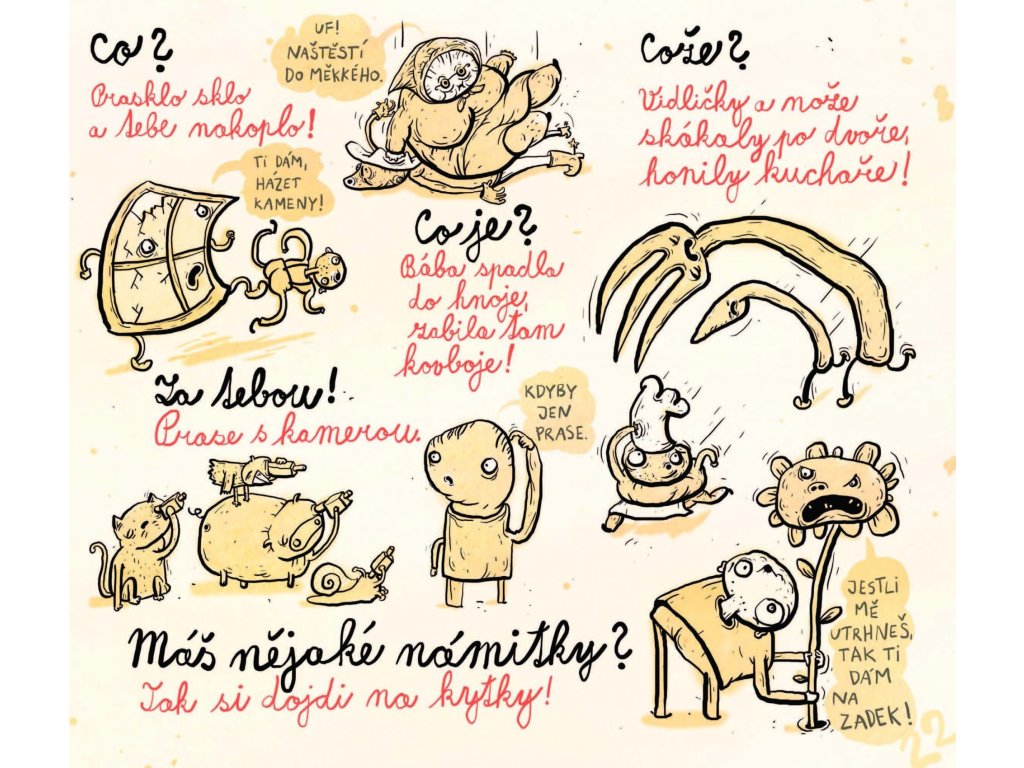 Co?
Prasklo sklo
a tebe nakoplo!
UF!
NAŠTĚSTÍ
DO MĚKKÉHO.
TI DÁM,
HÁZET
KAMENY!
Co je?
Bába spadla
do hnoje,
zabila tam
kovboje!
Cože?
Vidličky a nože
skákaly po dvoře,
honily kuchaře!
Za tebou!
Prase s kamerou.
KDYBY
JEN
PRASE.
Máš nějaké námitky?
Tak si dojdi na kytky!
JESTLI
MĚ
UTRHNEŠ,
TAK TI
DÁM
NA
ZADEK!
22